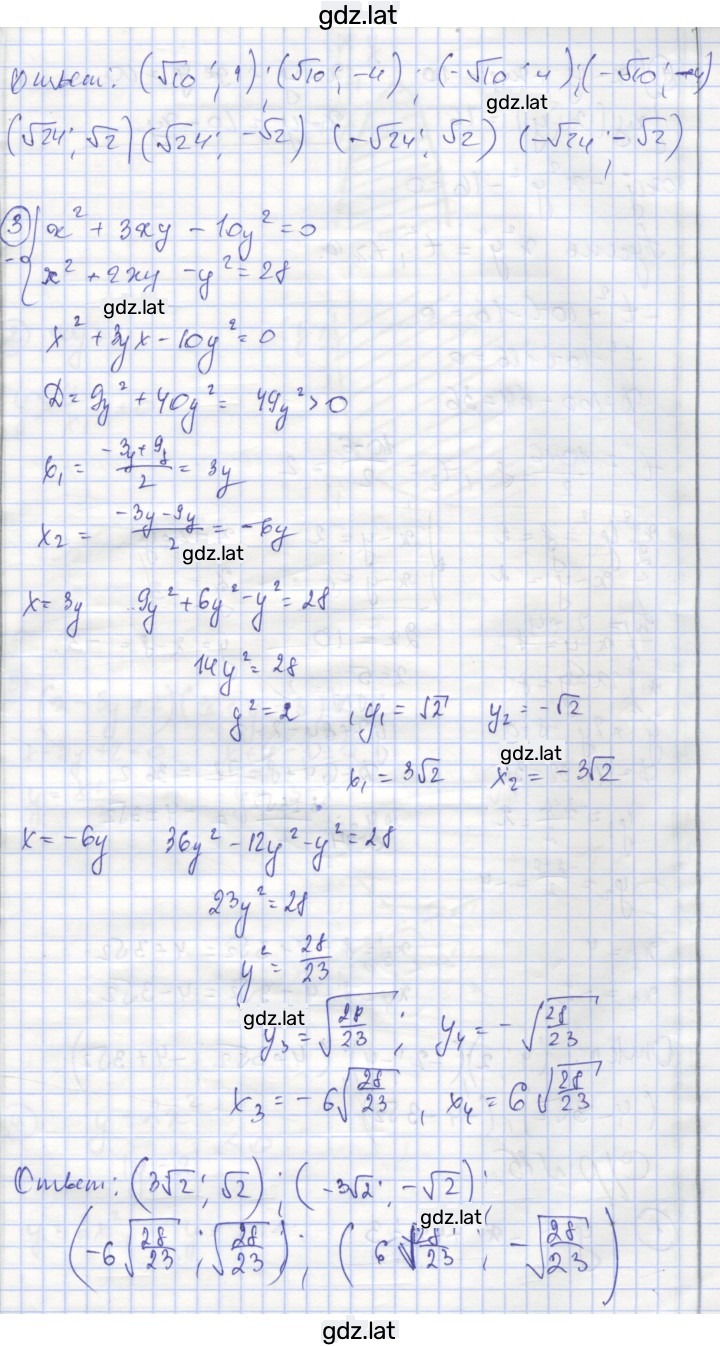 gdz.lat
Ответ: (√10; 4); (√10; -4); (-√10; 4); (-√10; -4)
gdz.lat
(√24; √2) (√24; -√2) (-√24; √2) (-√24; -√2)
③ { x² + 3xy - 10y² = 0
x² + 2xy - y² = 28
gdz.lat
x² + 3yx - 10y² = 0
D = 9y² + 40y² = 49y² > 0
x₁ = (-3y + 9y)/2 = 3y
x₂ = (-3y - 9y)/2 = -6y
gdz.lat
x = 3y 9y² + 6y² - y² = 28
14y² = 28
y² = 2 , y₁ = √2 y₂ = -√2
gdz.lat
x₁ = 3√2 x₂ = -3√2
x = -6y 36y² - 12y² - y² = 28
23y² = 28
y² = 28/23
gdz.lat
y₃ = √(28/23) ; y₄ = -√(28/23)
x₃ = -6√(28/23) , x₄ = 6√(28/23)
Ответ: (3√2; √2); (-3√2; -√2);
gdz.lat
(-6√(28/23); √(28/23)); (6√(28/23); -√(28/23))
gdz.lat